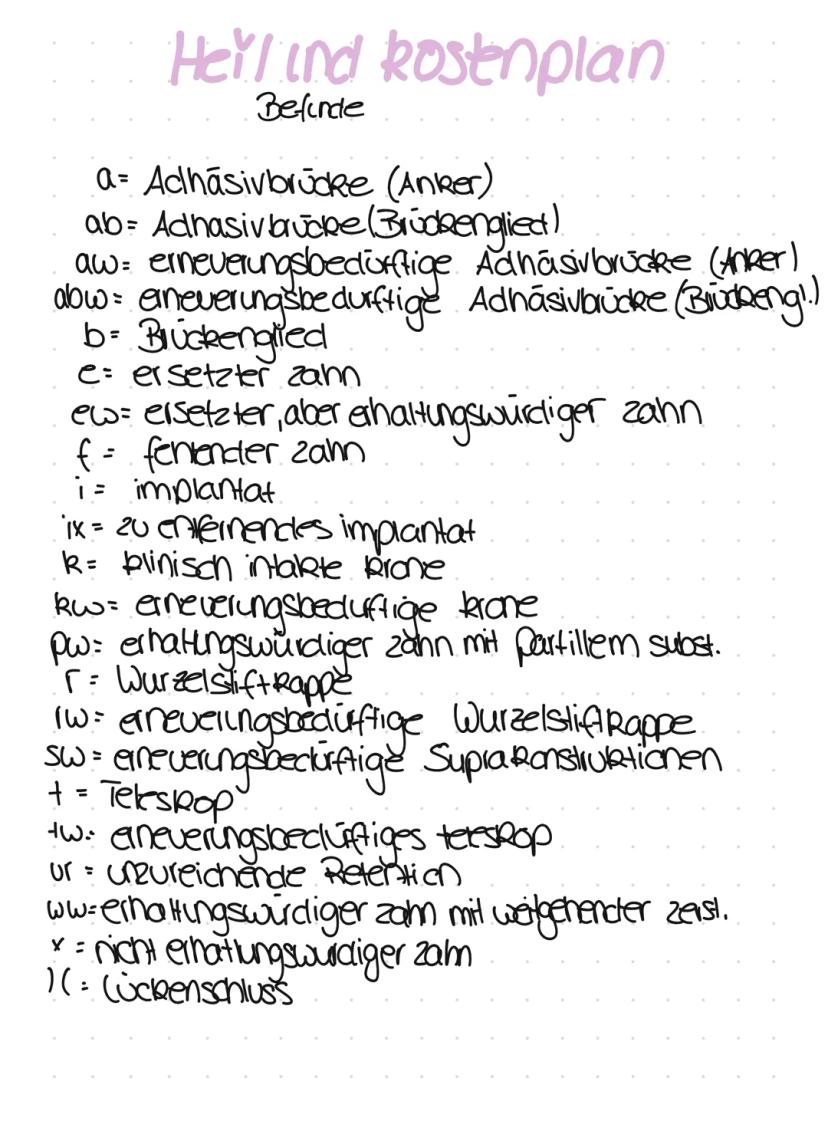 Heil und kostenplan
Befunde
a= Adhäsivbrücke (Anker)
ab= Adhasivbrücke (Brückenglied)
aw= erneuerungsbedürftige Adhäsivbrücke (Anker)
abw= erneuerungsbedurftige Adhäsivbrücke (Brückengl.)
b= Brückenglied
e= ersetzter zahn
ew= ersetzter, aber erhaltungswürdiger zahn
f = fehlender zahn
i = implantat
ix = zu entfernendes implantat
k= klinisch intakte krone
kw= erneuerungsbeduftige krone
pw= erhaltngswürdiger zahn mit partillem subst.
r = Wurzelstiftkappe
rw= erneuerungsbedürftige Wurzelstiftkappe
sw= erneuerungsbedürftige Suprakonstruktionen
t = Teleskop
tw= erneuerungsbedürftiges teleskop
ur = unzureichende Retention
ww= erhaltungswürdiger zahn mit weitgehender zerst.
x = nicht erhaltungswurdiger zahn
)( = Lückenschluss